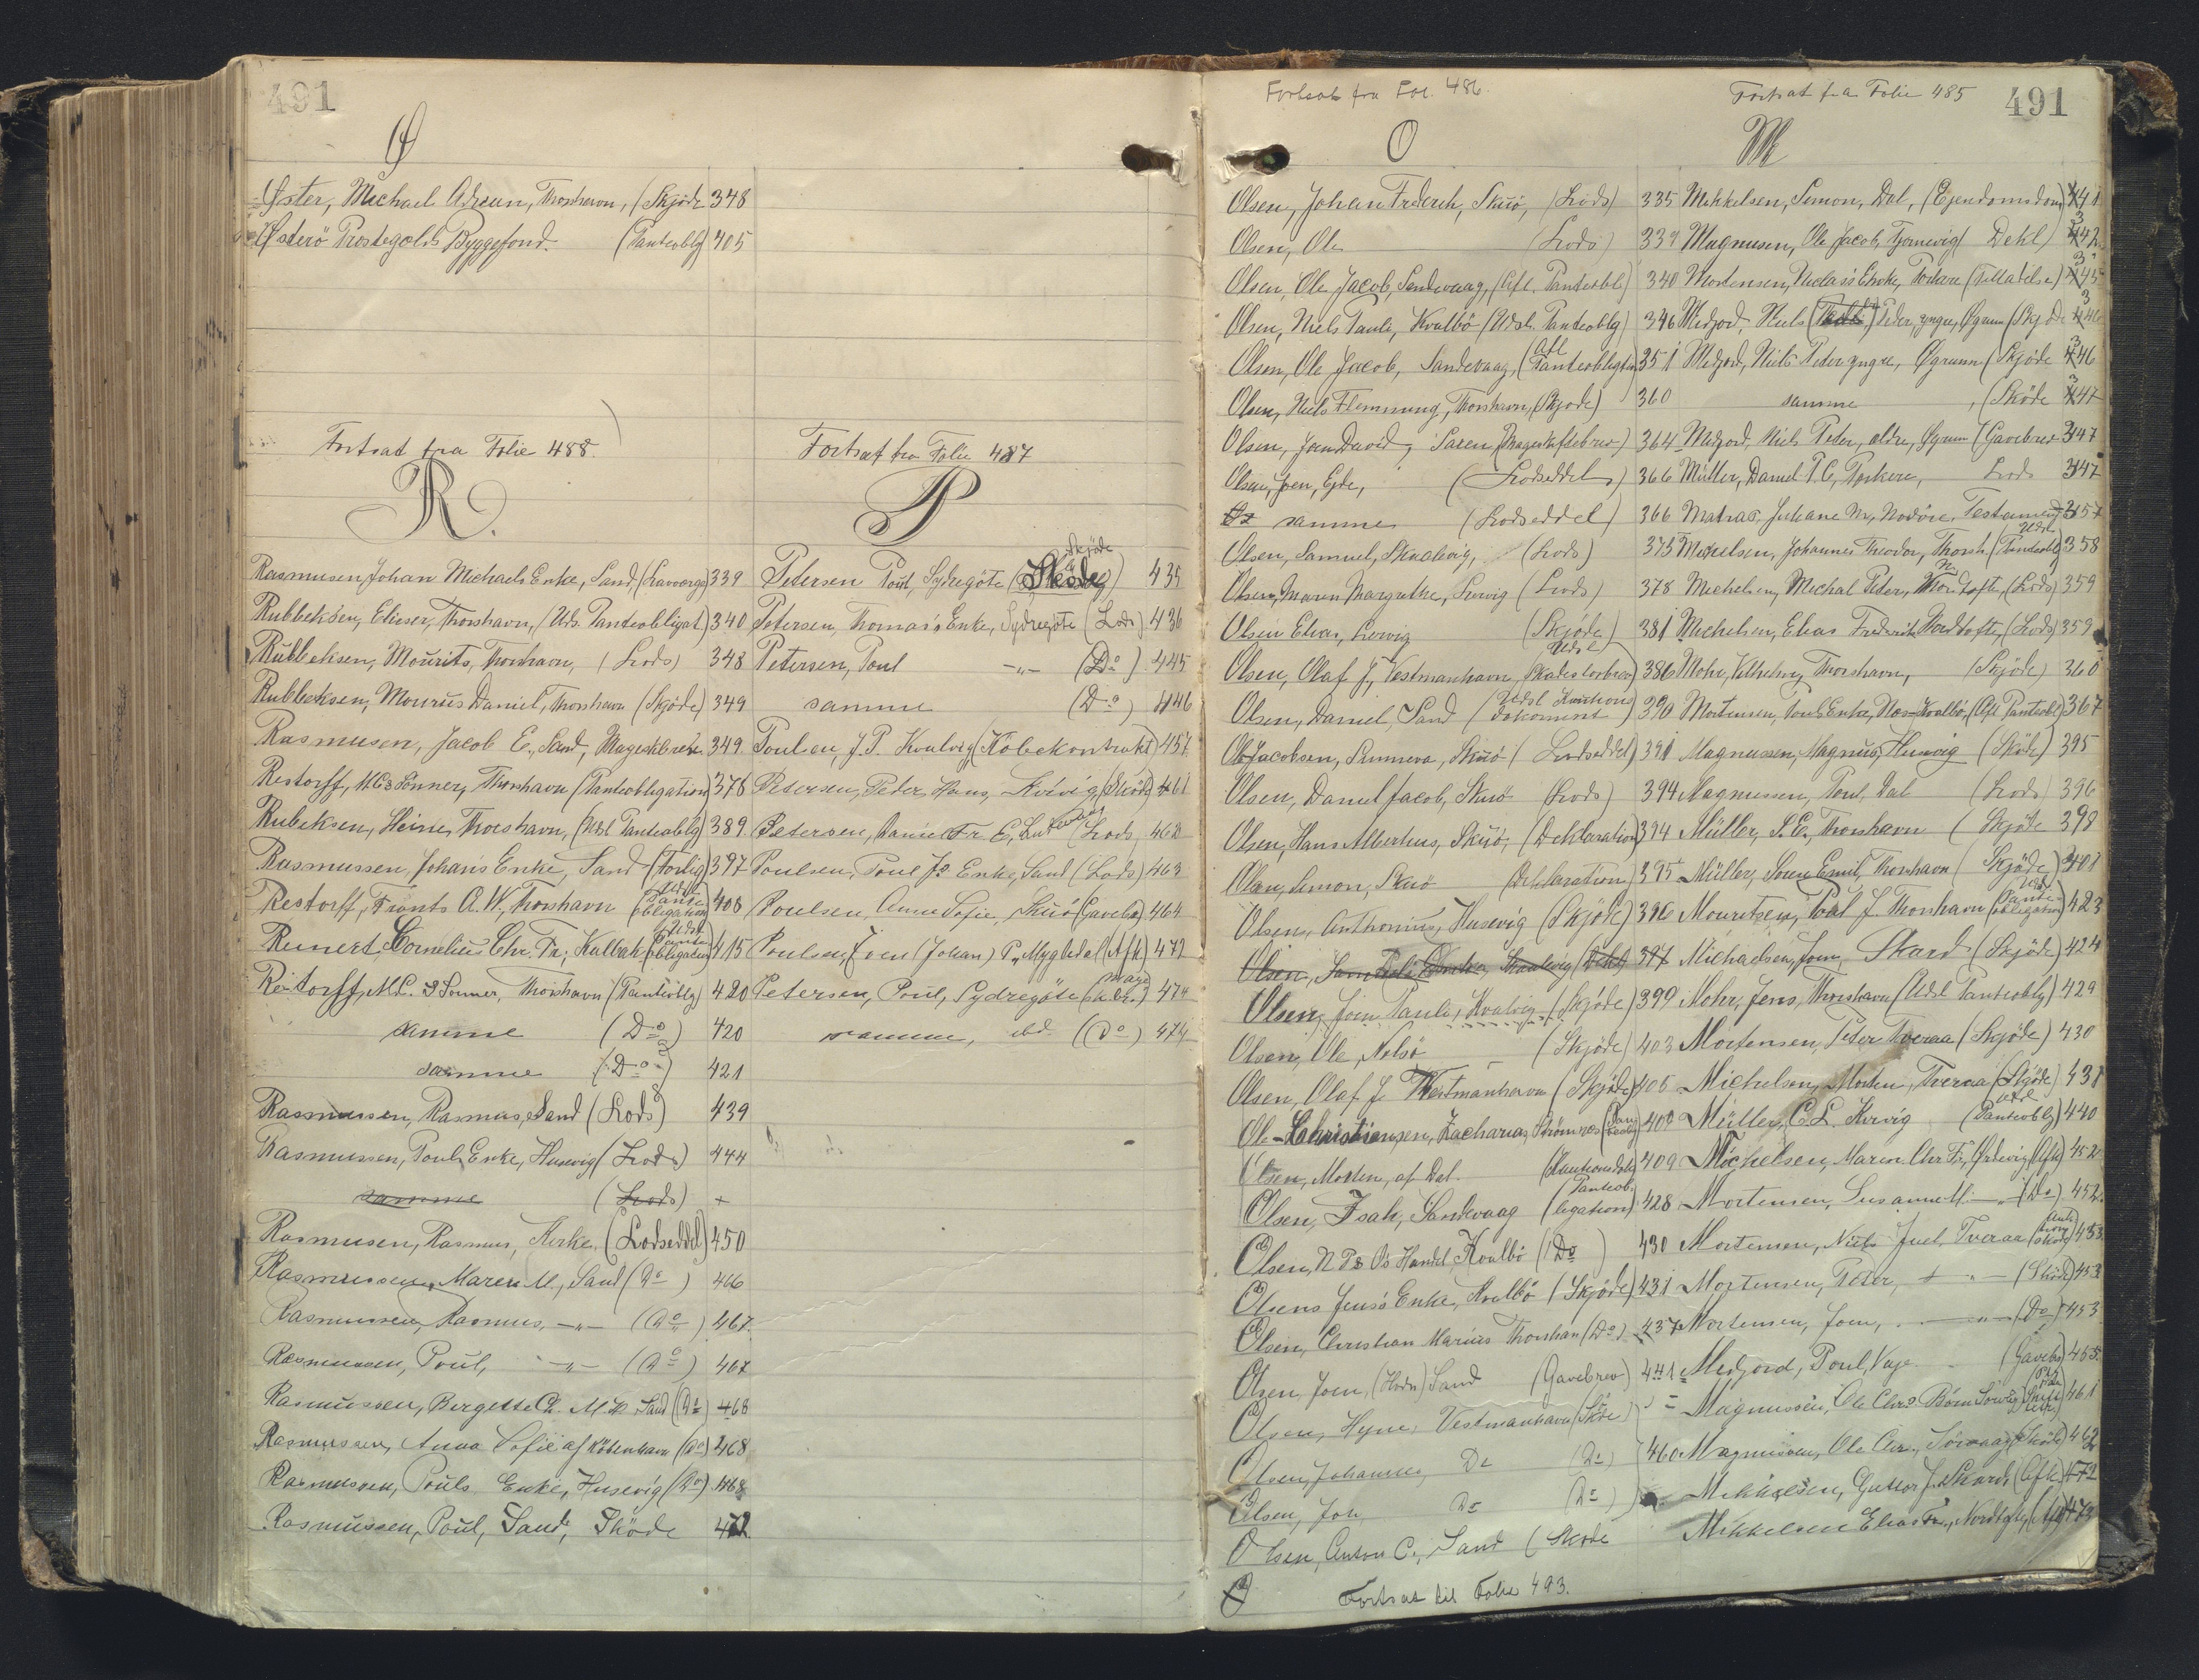 491
Ø
Øster, Michael Adrian, Thorshavn, (Skjöde 348
Østerö Prostegælds Byggefond. (Panteoblg) 405
Fortsat fra Folie 488.
R.
Rasmusen, Johan Michaels Enke, Sand, 339
Rubbeksen, Elieser, Thorshavn, (Uds. Panteobligat.) 340
Rubbeksen, Mourits, Thorshavn, (Lods) 348
Rubbeksen, Mourius Daniel, Thorshavn (Skjöde) 349
Rasmusen, Jacob E., Sand, Mageskebrev. 349
Restorff, M C & Sönner, Thorshavn (Panteobligation) 378
Rubeksen, Heine, Thorshavn, (Udsl Panteoblg) 389
Rasmussen, Johans Enke, Sand (Forlig) 397
Restorff, Frants A. W., Thorshavn (Udsl Panteobligation) 408
Reinert, Cornelius Chr. Fr., Kalbak (Udsl Panteobligation) 415
Restorff, M.C. & Sönner, Thorshavn (Panteoblg) 420
samme (Do) 420
samme (Do) 421
Rasmussen, Rasmus, Sand (Lods) 439
Rasmussen, Pouls Enke, Husevig (Lods) 444
samme (Lods) +
Rasmusen, Rasmus, (Lodseddel) 450
Rasmussen, Maren M., Sand (Do) 466
Rasmussen, Rasmus, -"- (Do) 467
Rasmussen, Poul, -"- (Do) 467
Rasmussen, Bergette Ch. M. K. Sand (Do) 468
Rasmussen, Anna Sofie af Köbenhavn (Do) 468
Rasmussen, Pouls Enke, Husevig (Do) 468
Rasmussen, Poul, Sand, Sköde 472
Fortsat fra Folie 487
P
Petersen Poul, Sydregöte (Skjöde) 435
Petersen, Thomas's Enke, Sydregöte (Lods) 436
Petersen, Poul -"- (Do) 445
samme (Do) 446
Poulsen, J. P. Kvalvig (Köbekontrakt) 457
Petersen, Peter Hans, (Sköde) 461
Petersen, Daniel Fr. E, (Lods, 463
Poulsen, Poul Js Enke, Sand (Lods) 463
Poulsen, Anna Sofie, Skuö (Gavebr) 464
Poulsen, Joen (Johan) P., Mygledal (Afk) 472
Petersen, Poul, Sydregöte (Mageskbr.) 474
samme, ibd (Do) 474
Fortsat fra Fol. 486.
O
Olsen, Johan Frederik, Skuö, (Lods) 335
Olsen, Ole (Lods) 339
Olsen, Ole Jacob, Sandevaag, (Afl. Panteobl) 340
Olsen, Niels Pauli, Kvalbö (Udsl. Panteoblg) 346
Olsen, Ole Jacob, Sandevaag, (Afl Panteobligtion) 351
Olsen, Niels Flemming, Thorshavn, (Skjöde) 360
Olsen, Joen David, Saxen (Mageskiftebrev) 364
Olsen, Joen, Ejde, (Lodseddel) 366
samme (Lodseddel) 366
Olsen, Samuel, Skaalevig, (Lods) 375
Olsen, Maren Margrethe, (Lods) 378
Olsen Elias, (Skjöde) 381
Olsen, Olaf J, Vestmanhavn, (Udsl Skadeslosbrev) 386
Olsen, Daniel, Sand (Udsl Kautions dokument) 390
Ole Jacobsen, Sunneva, Skuö (Lodseddel) 391
Olsen, Daniel Jacob, Skuö (Lods) 394
Olsen, Hans Albertus, Skuö, (Deklaration) 394
Olsen, Simon, Skuö (Deklaration) 395
Olsen, Anthonius, Husevig (Skjöde) 396
Olsen, 397
Olsen, Joen Pauli, Kvalvig (Skjöde) 399
Olsen, Ole, Nolsö (Skjöde) 403
Olsen, Olaf J. Vestmanhavn (Skjöde) 405
Ole-Christiansen, Zacharias, Strömnæs (Panteoblg) 408
Olsen, Morten, af Dal. (Kautionsdok) 409
Olsen, Isak, Sandevaag (Panteobligation) 428
Olsen, N. P's Handel, Kvalbö (Do) 430
Olsens Jens's Enke, Kvalbö (Skjöde) 431
Olsen, Christian Marius Thorshavn (Do) 437
Olsen, Joen, Sand (Gavebrev) 441
Olsen, Hejne, Vestmanhavn (Sköde)
Olsen, Johannes, Do (Do) 460
Olsen, Joh Do (Do)
Olsen, Anton C., Sand (Sköde
Fortsat til Folie 493.
Fortsat fra Folie 485
491
M
Mikkelsen, Simon, Dal, (Ejendomsdom) 341
Magnusen, Ole Jacob, Tjörnevig (Dekl) 342
Mortensen, Niclas's Enke, Porkere (Tilladelse) 345
Midjord, Niels Peder, yngre, Øgrunn (Skjöde 346
Midjord, Niels Peder yngre, Øgrunn (Skjöde 346
samme, (Sköde 347
Midjord, Niels Peter, ældre, Øgrunn (Gavebrev 347
Müller, Daniel P. C, Porkere, Lods 347
Matras, Juliane M., Nordöre, Testament 357
Michelsen, Johannes Theodor, Thorsh. (Udsl Panteoblg) 358
Michelsen, Michal Peter, Nordtofte, (Lods) 359
Michelsen, Elias Frederik Nordtofte, (Lods) 359
Mohr, Vilhelm, Thorshavn, (Skjöde) 360
Mortensen, Pouls Enke, Kvalbö, (Afl Panteobl) 367
Magnussen, Magnus, Husevig (Sköde) 395
Magnussen, Poul, Dal (Lods) 396
Müller, S. E., Thorshavn (Skjöte 398
Müller, Sören Emil, Thorshavn (Skjöde) 401
Mouritsen, Poul J. Thorshavn (Udsl Panteobligation) 423
Michaelsen, Joen, Skard (Skjöde) 424
Mohr, Jens, Thorshavn (Udsl Panteoblg) 429
Mortensen, Peter Tveraa (Skjöde) 430
Michelsen, Morten, Tveraa (Skjöde) 431
Müller, C. L. (Udsl Panteoblg) 440
Michelsen, Maren Chr. Fr., (Afk) 452
Mortensen, Susanne M. -"- (Do) 452
Mortensen, Niels Juel, Tveraa 453
Mortensen, Peter, -"- (Sköde) 453
Mortensen, Joen, -"- (Do) 453
Midjord, Poul, Vaje (Gavebr) 455
Magnussen, Ole Chrs Börn Sörvaag 461
Magnussen, Ole Chr., Sörvaag (Sköde) 462
Mikkelsen, Guttor J. Skard, (Afk) 472
Mikkelsen Elias Fr., Nordtofte, (Afk) 473